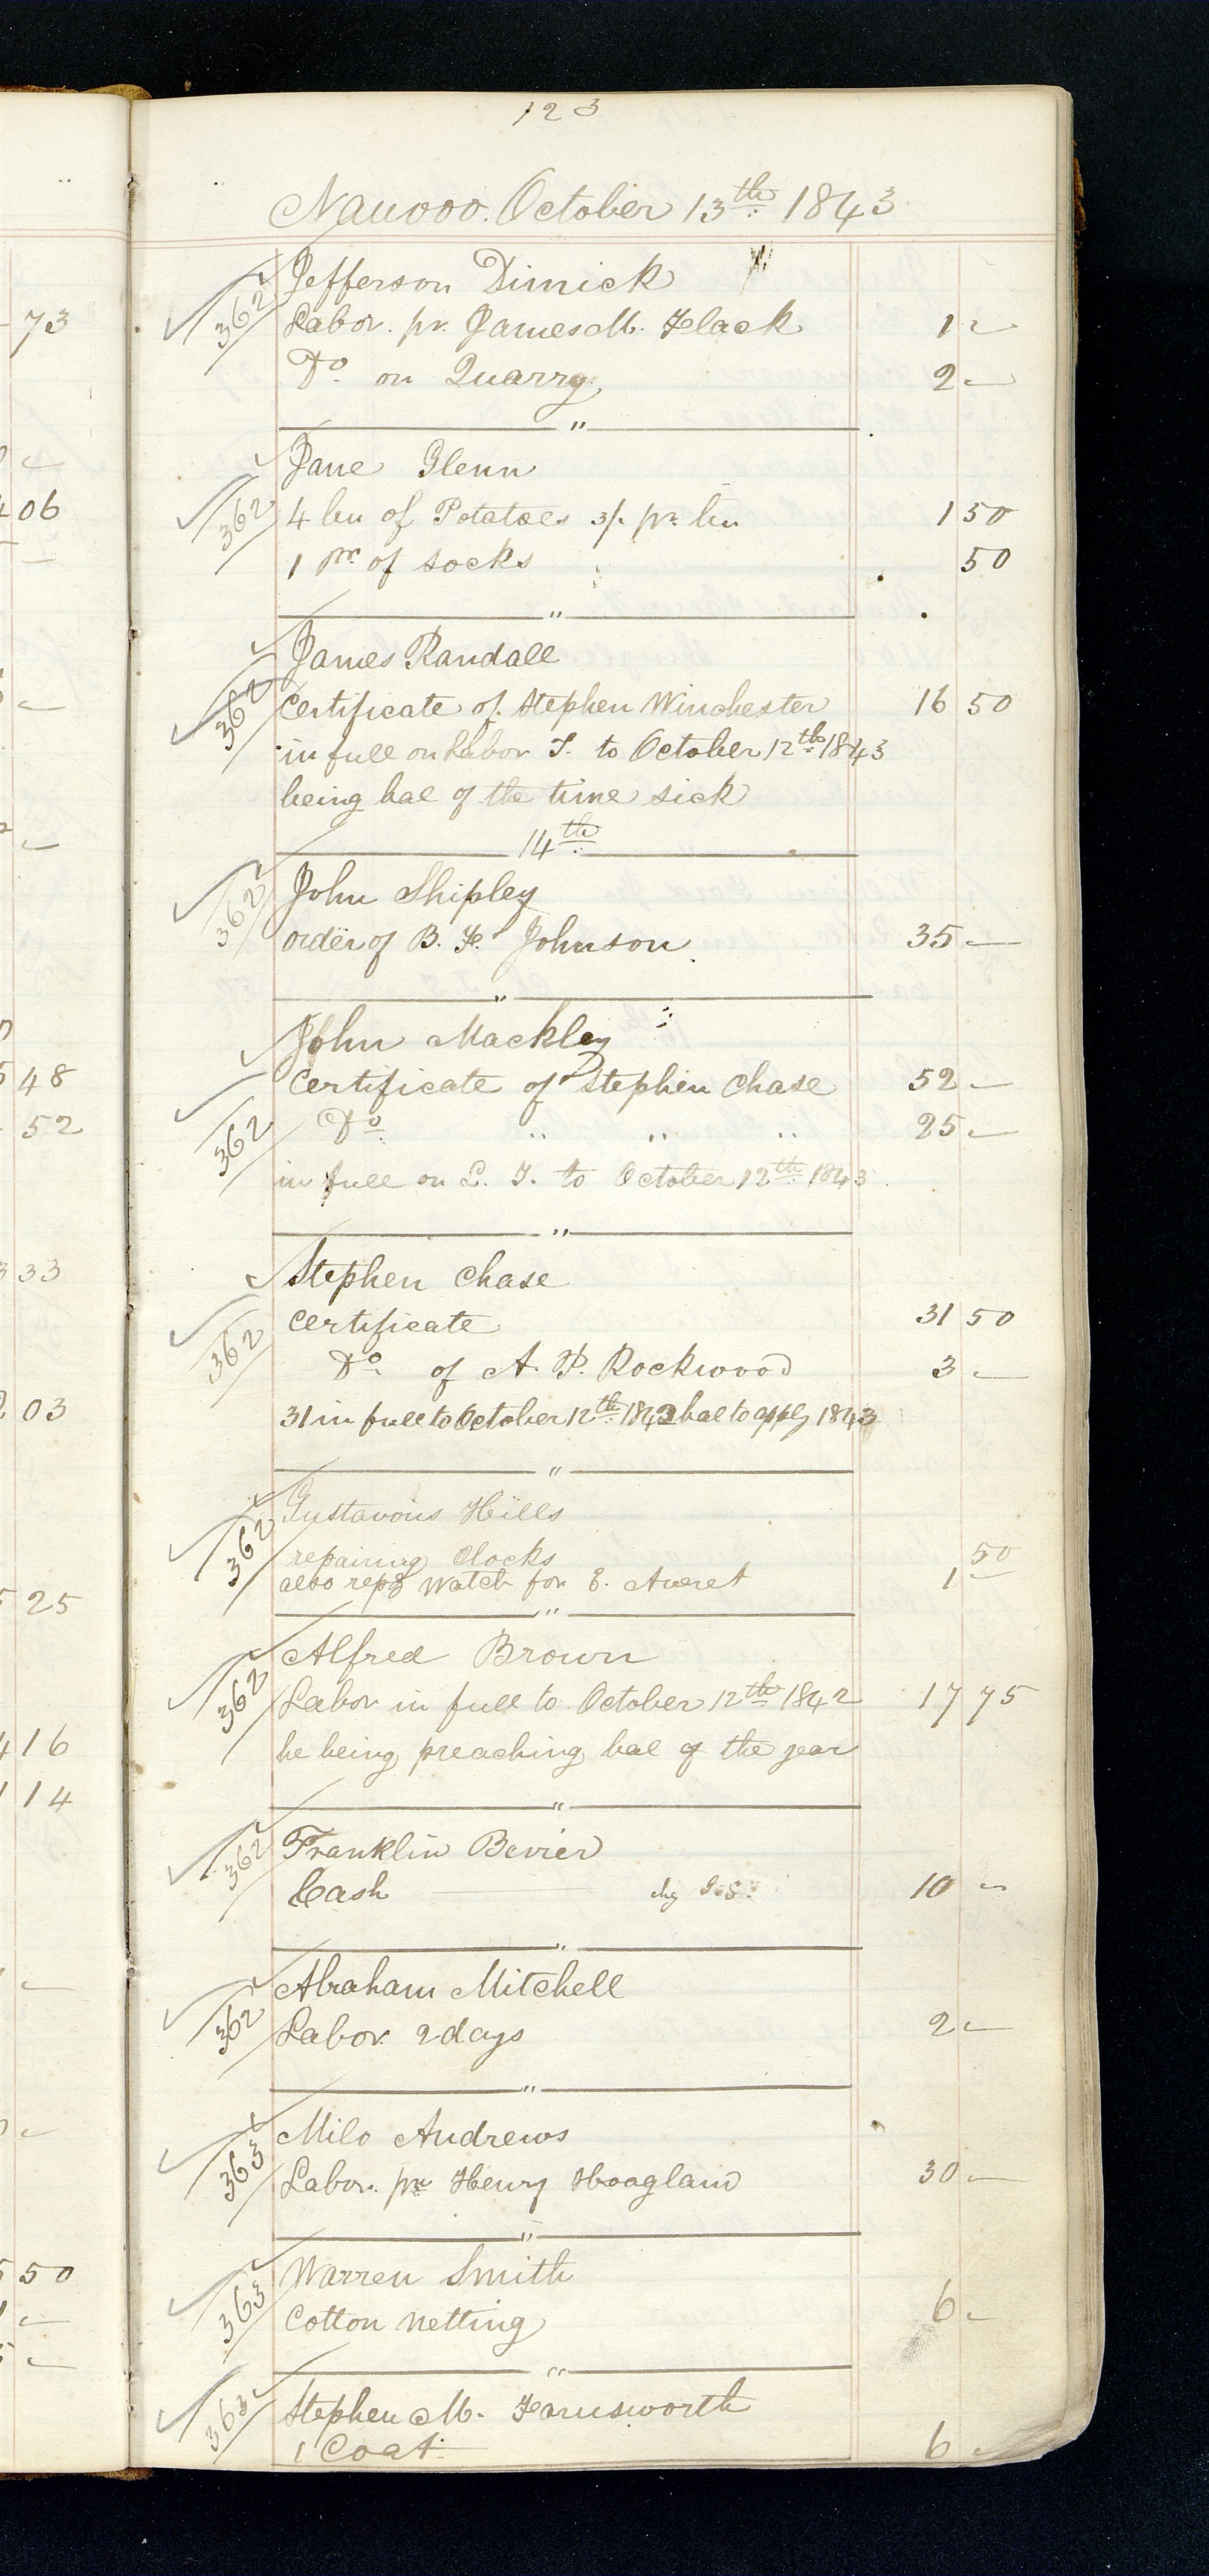 123
Nauvoo. October 13th 1843
Jefferson Dimick
362 Labor. pr. James M. Flack 1 —
Do on Quarry 2 —
"
Jane Glenn
362 4 bu of Potatoes 3/. pr bu 1 50
1 pr. of socks 50
"
James Randall
362 Certificate of Stephen Winchester 16 50
in full on Labor T. to October 12th 1843
being bal of the time sick
14th
362 John Shipley
order of B. F. Johnson 35 —
"
John Mackley
Certificate of Stephen Chase 52 —
362 Do " " " 25 —
in full on L. T. to October 12th 1843
"
Stephen Chase
Certificate 31 50
362 Do of A. P. Rockwood 3 —
31 in full to October 12th 1842 bal to apply 1843
"
Gustavous Hills
362 repairing Clocks 50
also repg watch for E. Averet 1 —
"
Alfred Brown
362 Labor in full to October 12th 1842 17 75
he being preaching bal of the year
"
362 Franklin Bevier
Cash chg 10 —
"
Abraham Mitchell
362 Labor 2 days 2 —
"
Milo Andrews
363 Labor. pr Henry Hoagland 30 —
"
Warren Smith
363 Cotton netting 6 —
"
Stephen M. Farnsworth
363 1 Coat 6 —
73
06
48
52
33
03
25
16
14
50